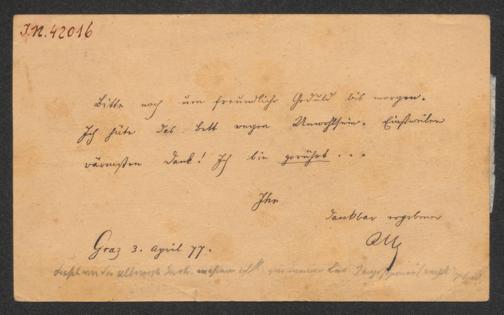 I.N. 42016
Bitte noch um freundliche Geduld bis morgen.
Ich hüte das Bett wegen Unwohlsein. Einstweilen
wärmsten Dank! Ich bin gerührt...
Ihr
dankbar ergebener
Graz 3. April 77.